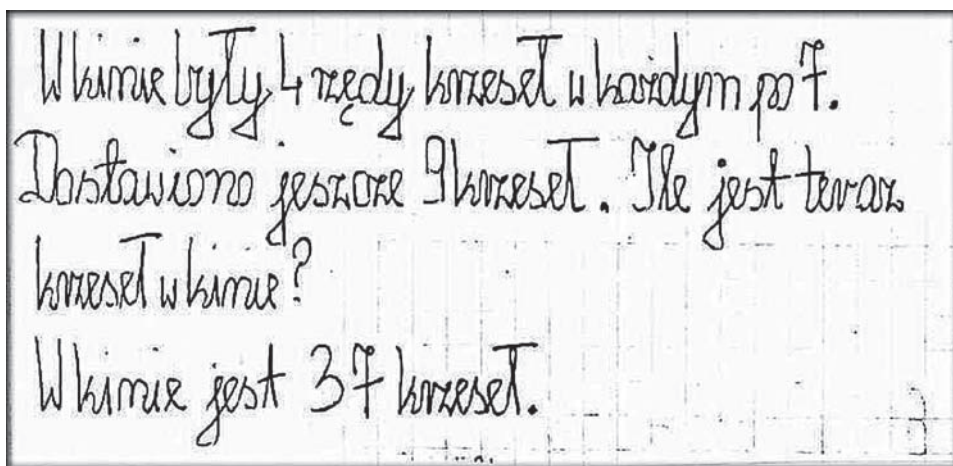 W kinie były 4 rzędy krzeseł w każdym po 7.
Dostawiono jeszcze 9 krzeseł. Ile jest teraz
krzeseł w kinie?
W kinie jest 37 krzeseł.
3